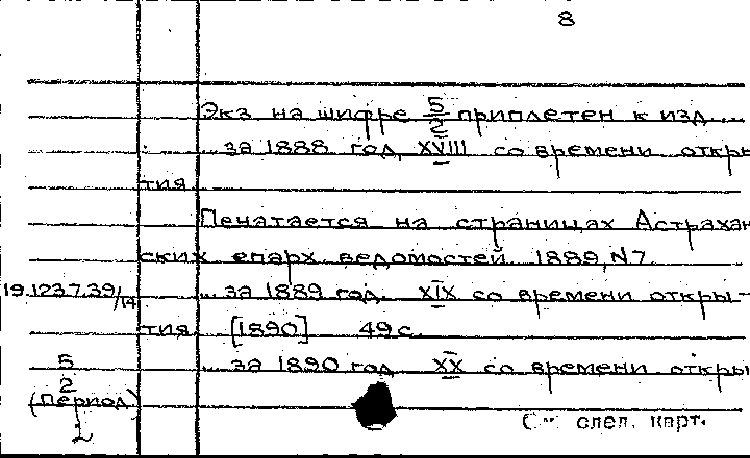 8
Экз на шифре 5/2 приплетен к изд....
... за 1888 год, XVIII со времени откры
тия......
Печатается на страницах Астрахан
ских епарх ведомостей. 1889, N7.
19.1237.39/14 ... за 1889 год. XIX со времени откры-
тия [1890] 49 с.
5/2 ... за 1890 год XX со времени откры
(период)
2
См след. карт.